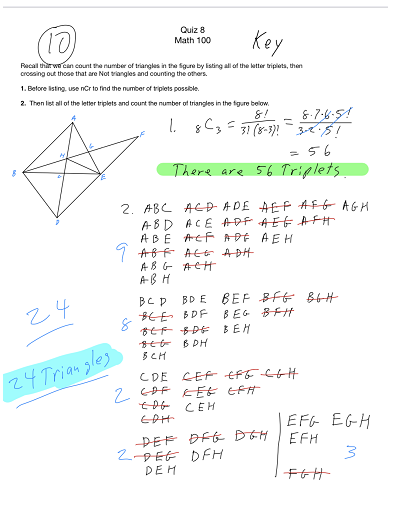 10
Quiz 8
Math 100
Key
Recall that we can count the number of triangles in the figure by listing all of the letter triplets, then
crossing out those that are Not triangles and counting the others.
1. Before listing, use nCr to find the number of triplets possible.
2. Then list all of the letter triplets and count the number of triangles in the figure below.
A
F
G
H
B
C
E
D
1. 8C3 = 8! / 3!(8-3)! = 8·7·6·5! / 3·2·5!
= 56
There are 56 Triplets.
2. ABC ACD ADE AEF AFG AGH
ABD ACE ADF AEG AFH
ABE ACF ADG AEH
9 ABF ACG ADH
ABG ACH
ABH
24
24 Triangles
BCD BDE BEF BFG BGH
8 BCE BDF BEG BFH
BCF BDG BEH
BCG BDH
BCH
CDE CEF CFG CGH
2 CDF CEG CFH
CDG CEH
CDH
DEF DFG DGH
2 DEG DFH
DEH
EFG EGH
EFH
3
FGH